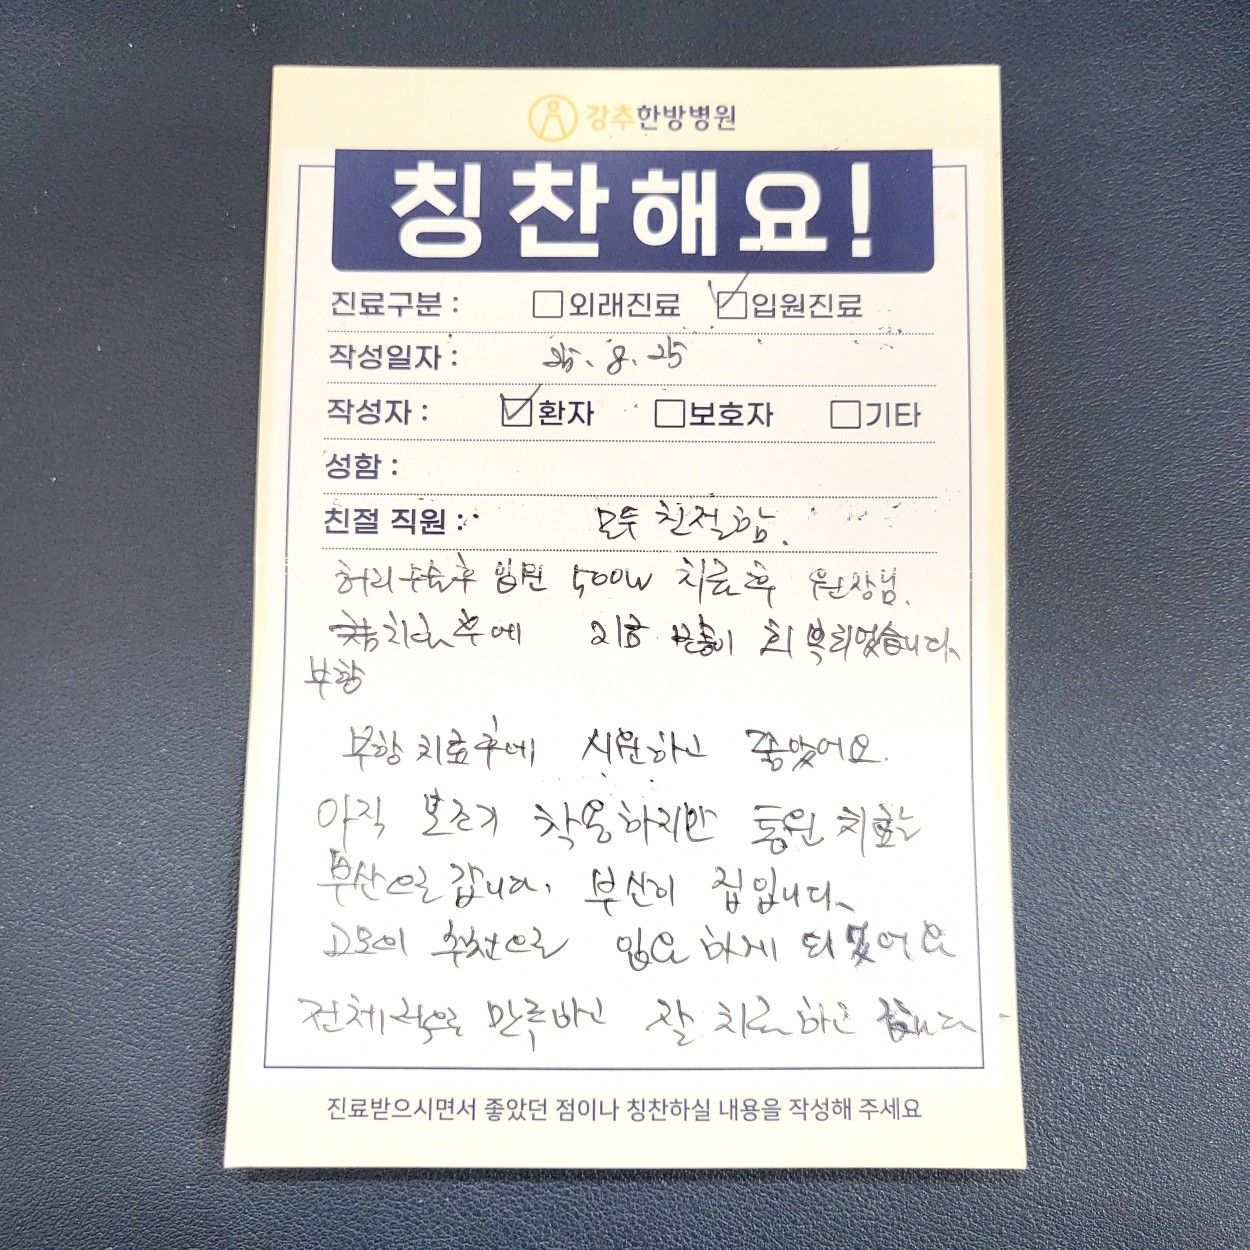 강추한방병원
칭찬해요!
진료구분 : 외래진료 입원진료
작성일자 : 25. 8. 25
작성자 : 환자 보호자 기타
성함 :
친절 직원 : 모두 친절함.
허리수술후 입원 500W 치료후 원장님.
치료후에 지금 많이 회복되었습니다.
부항
부항 치료후에 시원하고 좋았어요.
아직 보조기 착용하지만 통원 치료는
부산으로 갑니다. 부산이 집입니다.
고모의 추천으로 입원하게 되었어요
전체적으로 만족하고 잘 치료하고 갑니다.
진료받으시면서 좋았던 점이나 칭찬하실 내용을 작성해 주세요